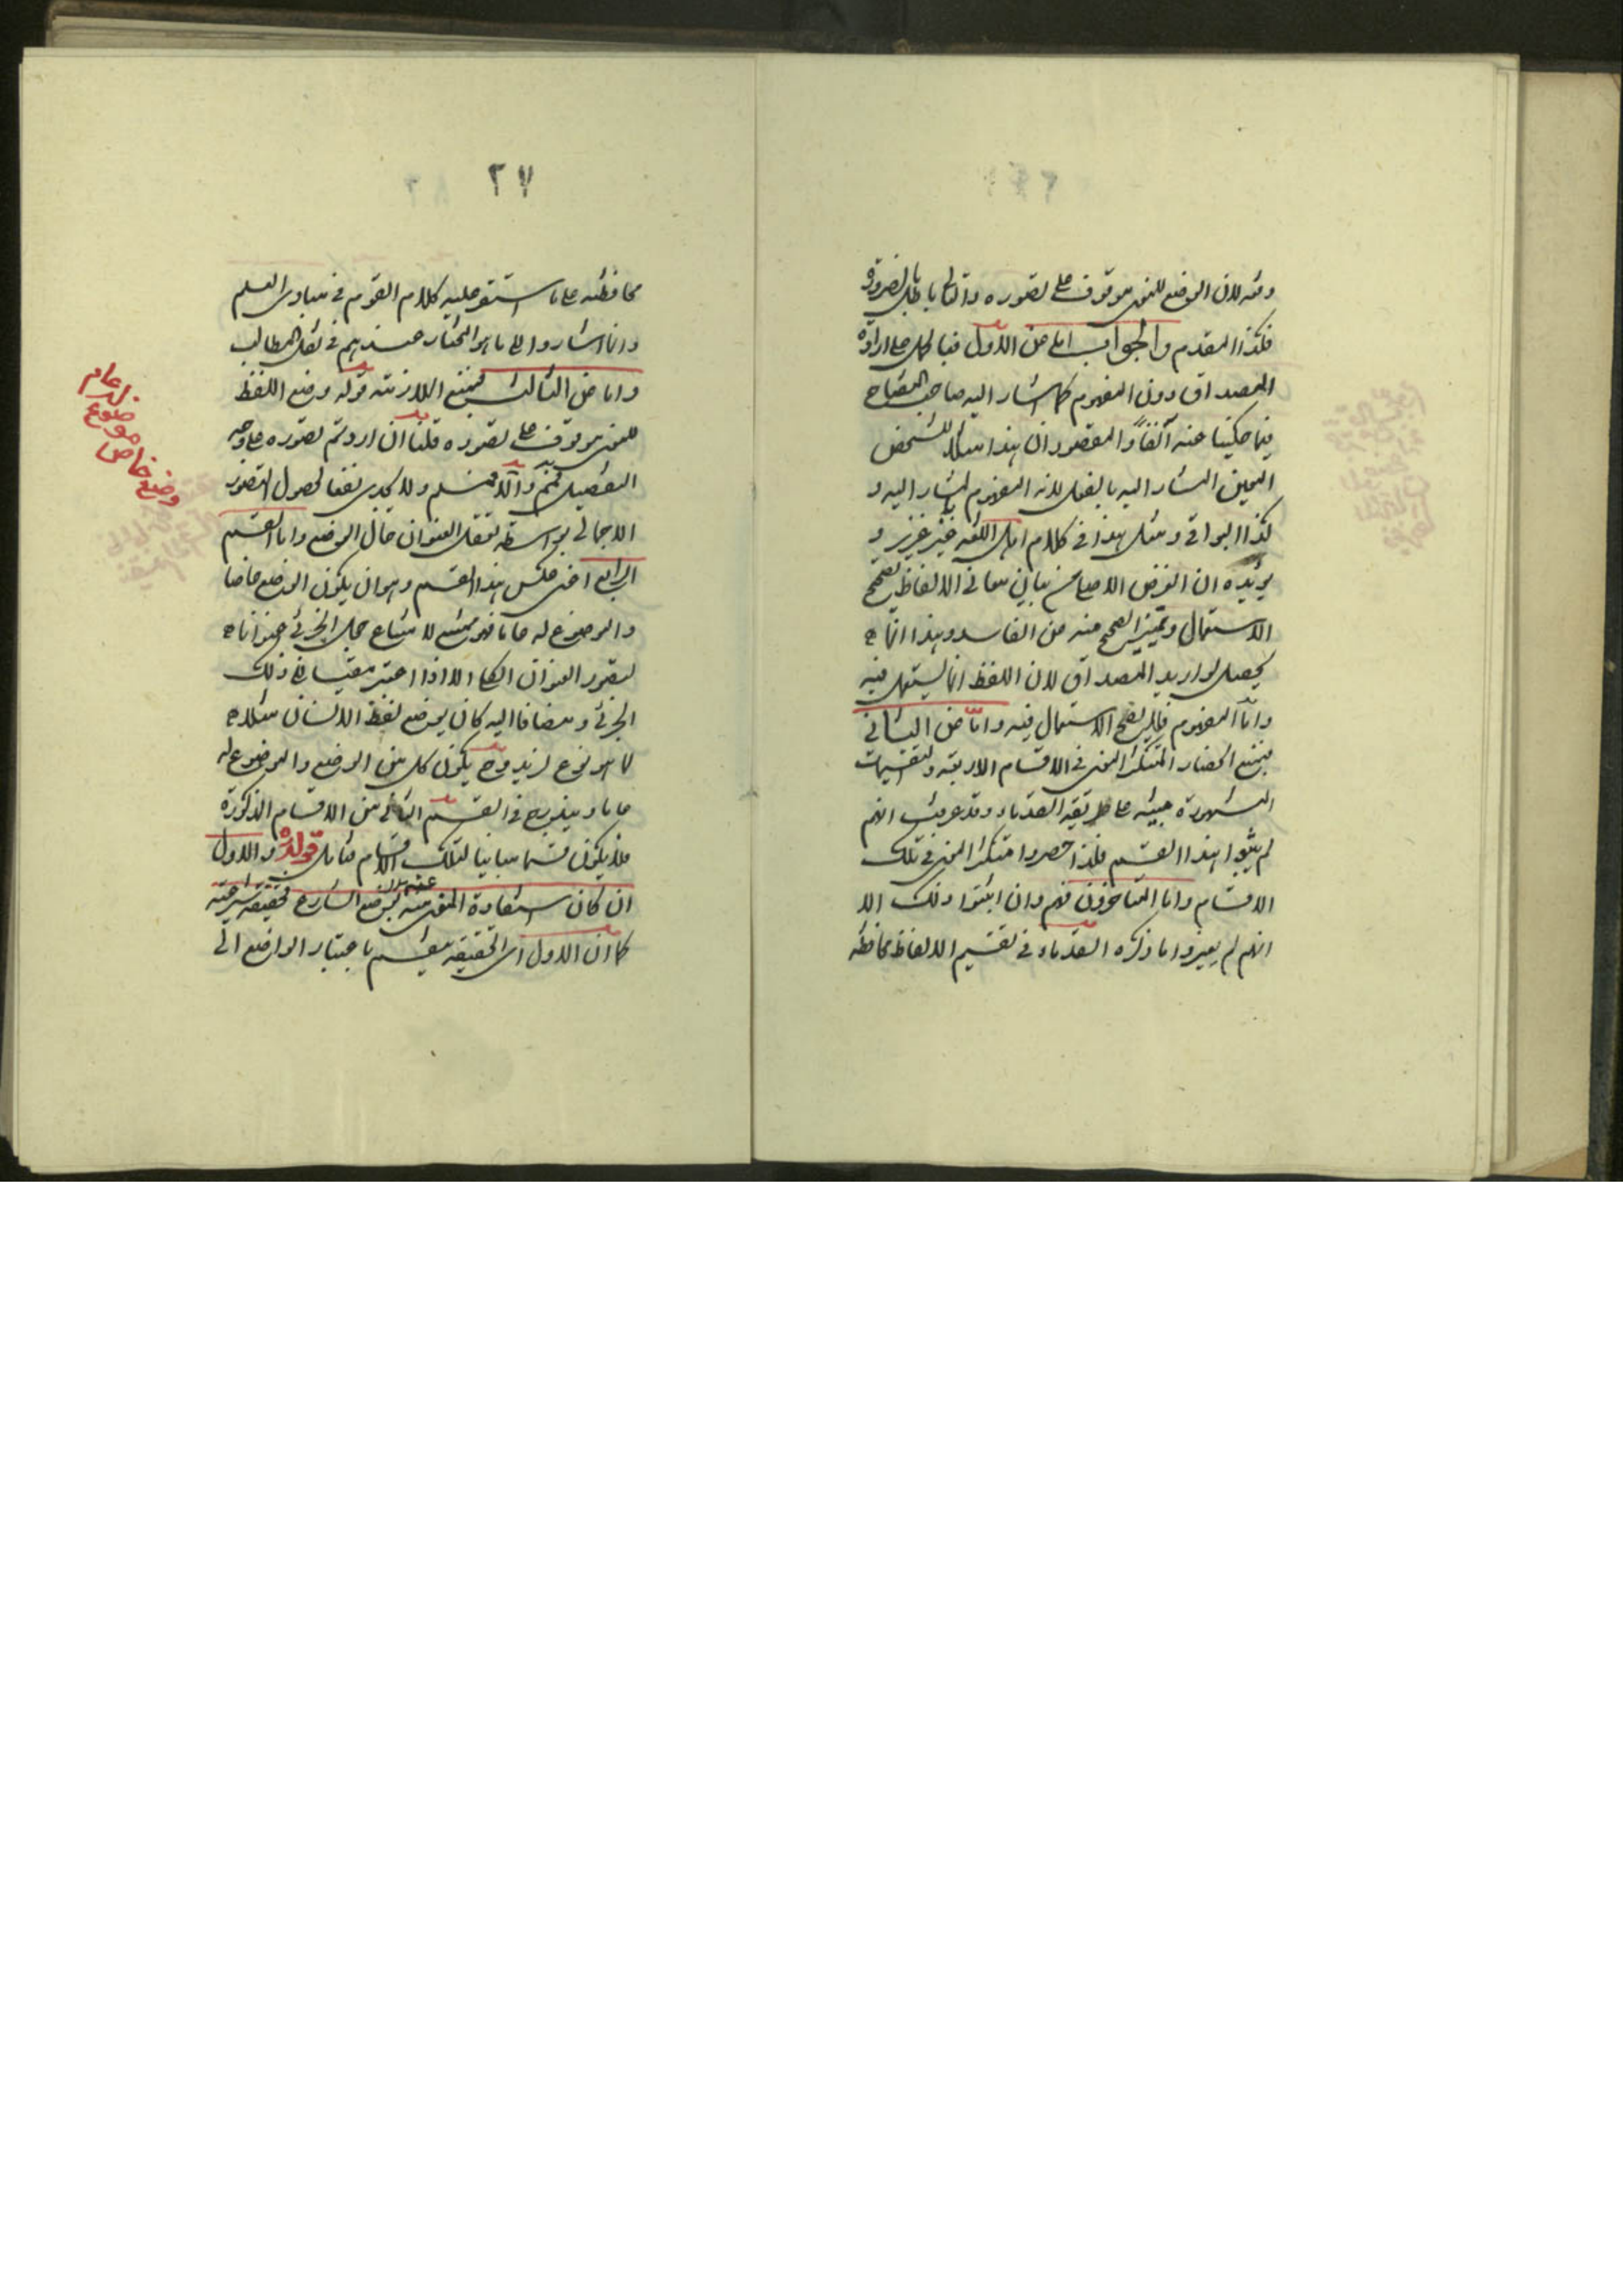 وضعه لان الوضع للمعنى موقوف على تصوره والتالي باطل بالضرورة
فكذا المقدم والجواب اما عن الاول فبالحمل على ارادة
المصداق دون المفهوم كما اشار اليه صاحب المصباح
فيما حكينا عنه آنفاً والمقصود ان هذا مثلا للشخص
المعين المشار اليه بالفعل لانه المفهوم المشار اليه و
كذا البواقي ومثل هذا في كلام اهل اللغة غير عزيز و
يؤيده ان الغرض الاصلي من بيان معاني الالفاظ تصحيح
الاستعمال وتمييز الصحيح منه من الفاسد وهذا انما
يحصل لو اريد المصداق لان اللفظ انما يستعمل فيه
واما المفهوم فلا يصح الاستعمال فيه واما عن الثاني
فبمنع انحصار المتكثر المعنى في الاقسام الاربعة والتقسيمات
المشهورة مبنية على طريقة القدماء وقد عرفت انهم
لم يثبتوا هذا القسم فلذا حصروا متكثر المعنى في تلك
الاقسام واما المتأخرون فهم وان اثبتوا ذلك الا
انهم لم يغيروا ما ذكره القدماء في تقسيم الالفاظ محافظة
٢٧
محافظة على ما استقر عليه كلام القوم في مبادى العلم
وانما اشاروا الى ما هو المختار عندهم في نقل المطالب
واما عن الثالث فبمنع الملازمة قوله وضع اللفظ
للمعنى موقوف على تصوره قلنا ان اردتم تصوره على وجه
التفصيل فمم والا فمسلم ولا يجدى نفعا لحصول التصور
الاجمالي بواسطة تعقل العنوان حال الوضع واما القسم
الرابع اعنى عكس هذا القسم وهو ان يكون الوضع خاصا
والموضوع له عاما فهو ممتنع لامتناع جعل الجزئي عنوانا
لتصور العنوان الكلي الا اذا اعتبر مقيسا في ذلك
الجزئي ومضافا اليه كان يوضع لفظ الانسان مثلا
لما هو نوع لزيد وح يكون كل من الوضع والموضوع له
عاما ويندرج في القسم الثاني من الاقسام المذكورة
فلا يكون قسما مباينا لتلك الاقسام فتأمل قوله والاول
ان كان استفادة المعنى منه بوضع الشارع فحقيقة شرعية
كما ان الاول اى الحقيقة ينقسم باعتبار الواضع الى
عام
موضوع
خاص
وضع